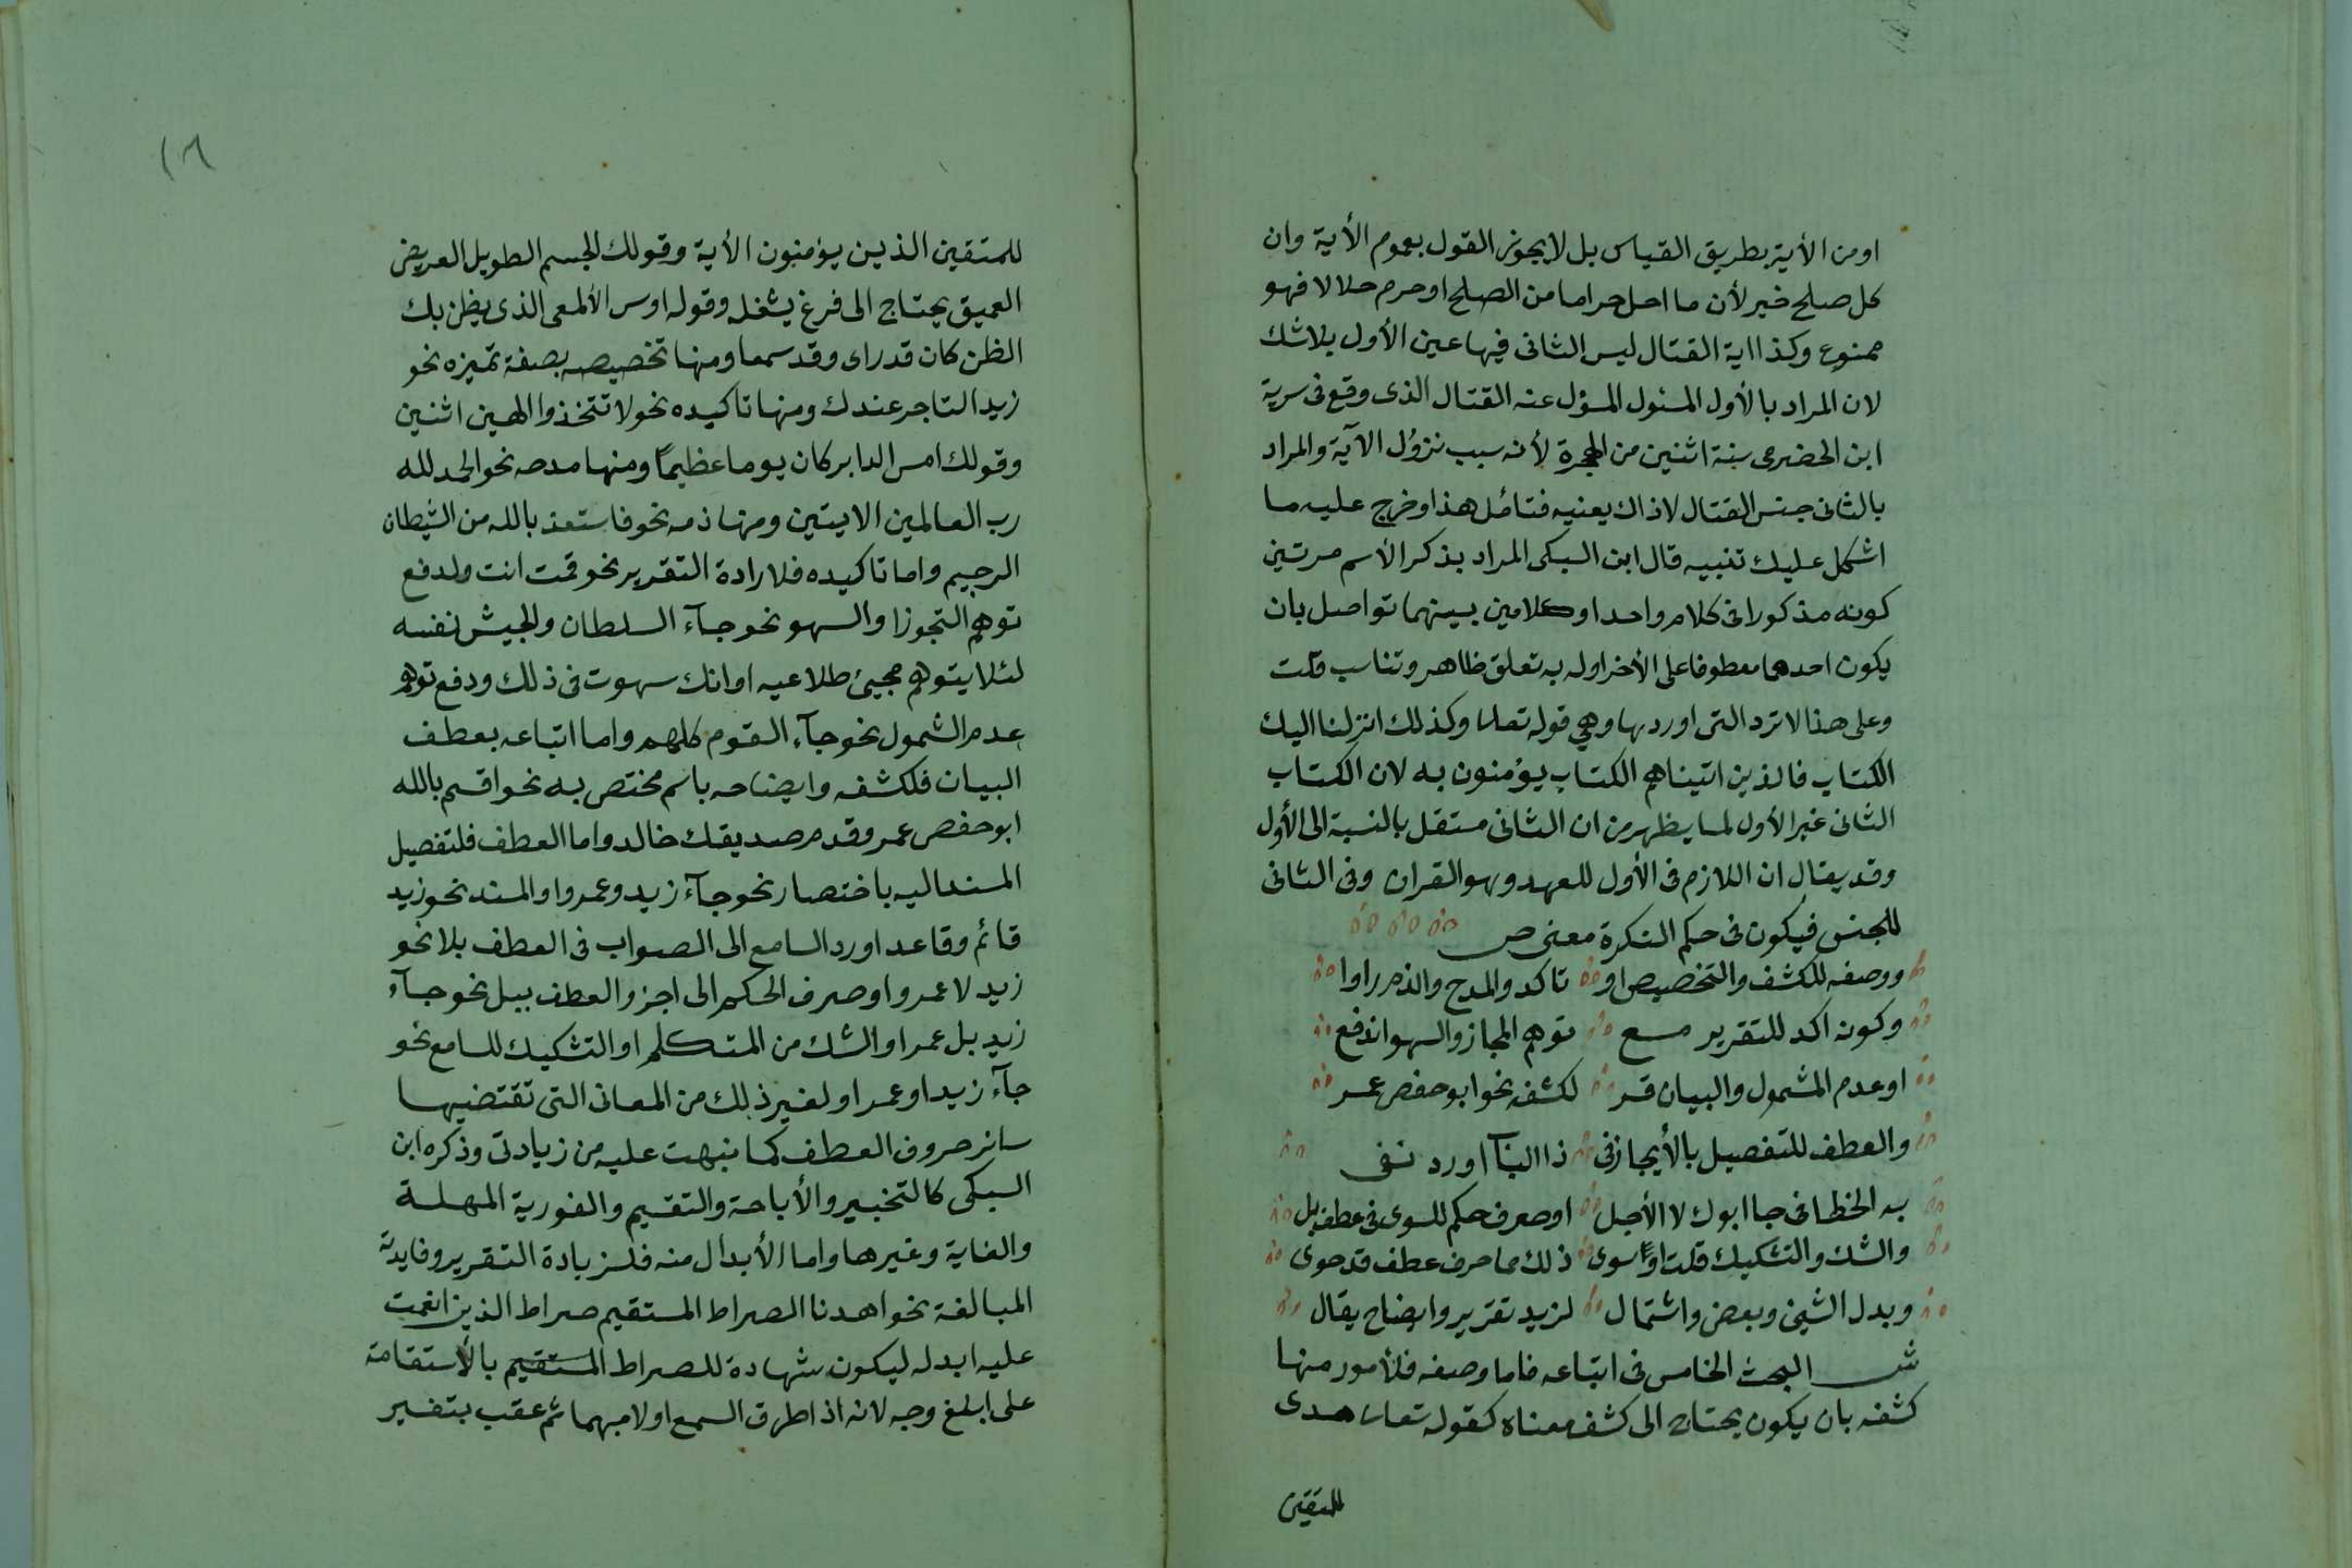 اومن الأية بطريق القياس بل لا يجوز القول بعموم الأية وان
كل صلح خير لأن ما احل حراما من الصلح او حرم حلالا فهو
ممنوع وكذا اية القتال ليس الثانى فيها عين الأول بلا شك
لان المراد بالأول المسئول المسؤل عنه القتال الذى وقع فى سرية
ابن الحضرمى سنة اثنين من الهجرة لأنه سبب نزول الآية والمراد
بالثانى جنس القتال لا ذاك بعينه فتامل هذا وخرج عليه ما
اشكل عليك تنبيه قال ابن السبكى المراد بذكر الأسم مرتين
كونه مذكورا فى كلام واحد او كلامين بينهما تواصل بان
يكون احدهما معطوفا على الأخر اوله به تعلق ظاهر وتناسب قلت
وعلى هذا لا ترد التى اوردها وهي قوله تعا وكذلك انزلنا اليك
الكتاب فالذين اتيناهم الكتاب يؤمنون به لان الكتاب
الثانى غير الأول لما يظهر من ان الثانى مستقل بالنسبة الى الأول
وقد يقال ان اللازم فى الأول للعهد وهو القران وفى الثانى
للجنس فيكون فى حكم النكرة معنى ص
ووصفه للكشف والتخصيص او تاكد والمدح والذم راوا
وكونه اكد للتقرير مع توهم المجاز والسهو اندفع
او عدم الشمول والبيان قر لكشفه نحو ابو حفص عمر
والعطف للتفصيل بالأيجاز فى ذا البآ اورد نفى
به الخطا فى جا ابوك لا الأجل او صرف حكم للسوى فى عطف بل
والشك والتشكيك قلت او سوى ذلك مما حرف عطف قد حوى
وبدل الشيئ وبعض واشتمال لزيد تقرير وايضاح يقال
ش البحث الخامس فى اتباعه فاما وصفه فلأمور منها
كشفه بان يكون يحتاج الى كشف معناه كقوله تعا هدى
للمتقين
١٦
للمتقين الذين يؤمنون الأية وقولك الجسم الطويل العريض
العميق يحتاج الى فرغ يشغله وقوله اوس الألمعى الذى يظن بك
الظن كان قدراى وقد سمعا ومنها تخصيصه بصفة تميزه نحو
زيد التاجر عندك ومنها تاكيده نحو لا تتخذوا الهين اثنين
وقولك امس الدابر كان يوما عظيمًا ومنها مدحه نحو الحمد لله
رب العالمين الايتين ومنها ذمه نحو فاستعذ بالله من الشيطان
الرجيم واما تاكيده فلارادة التقرير نحو قمت انت ولدفع
توهم التجوز او السهو نحو جآء السلطان والجيش نفسه
لئلا يتوهم مجيئ طلاعيه او انك سهوت فى ذلك ودفع توهم
عدم الشمول نحو جآء القوم كلهم واما اتباعه بعطف
البيان فلكشفه وايضاحه باسم مختص به نحو اقسم بالله
ابو حفص عمر وقدم صديقك خالد واما العطف فلتفصيل
المسند اليه باختصار نحو جآء زيد وعمرو او المسند نحو زيد
قائم وقاعد او رد السامع الى الصواب فى العطف بلا نحو
زيد لا عمرو او صرف الحكم الى اخر والعطف ببل نحو جآء
زيد بل عمر او الشك من المتكلم او التشكيك للسامع نحو
جآء زيد او عمر او لغير ذلك من المعانى التى تقتضيها
سائر حروف العطف كما نبهت عليه من زيادتى وذكره ابن
السبكى كالتخيير والأباحة والتقسيم والفورية المهلة
والغاية وغيرها واما الأبدال منه فلزيادة التقرير وفايدته
المبالغة نحو اهدنا الصراط المستقيم صراط الذين انعمت
عليه ابدله ليكون شهادة للصراط المستقيم بالأستقامة
على ابلغ وجه لانه اذا اطرق السمع اولا مبهما ثم عقب بتفسير